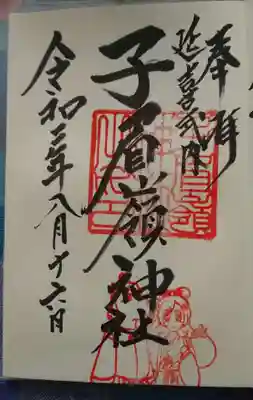 奉拝
延喜式内
子眉嶺神社
令和三年八月十六日